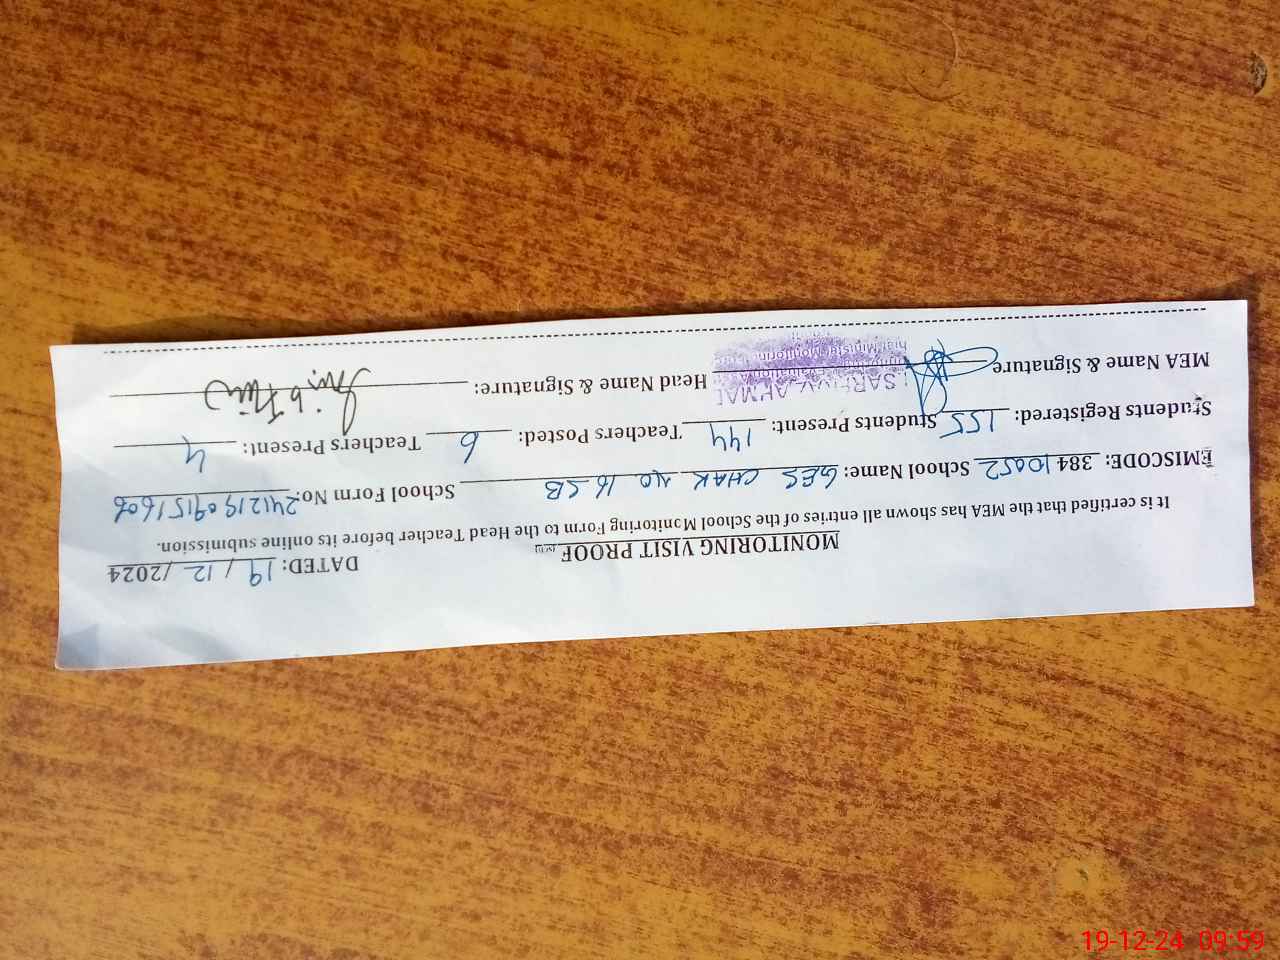 DATED: 19 / 12 /2024
MONITORING VISIT PROOF
It is certified that the MEA has shown all entries of the School Monitoring Form to the Head Teacher before its online submission.
EMISCODE: 38410052 School Name: GES CHAK NO 16 SB School Form No: 2412190915160
Students Registered: 155 Students Present: 144 Teachers Posted: 6 Teachers Present: 4
MEA Name & Signature Head Name & Signature:
19-12-24 09:59